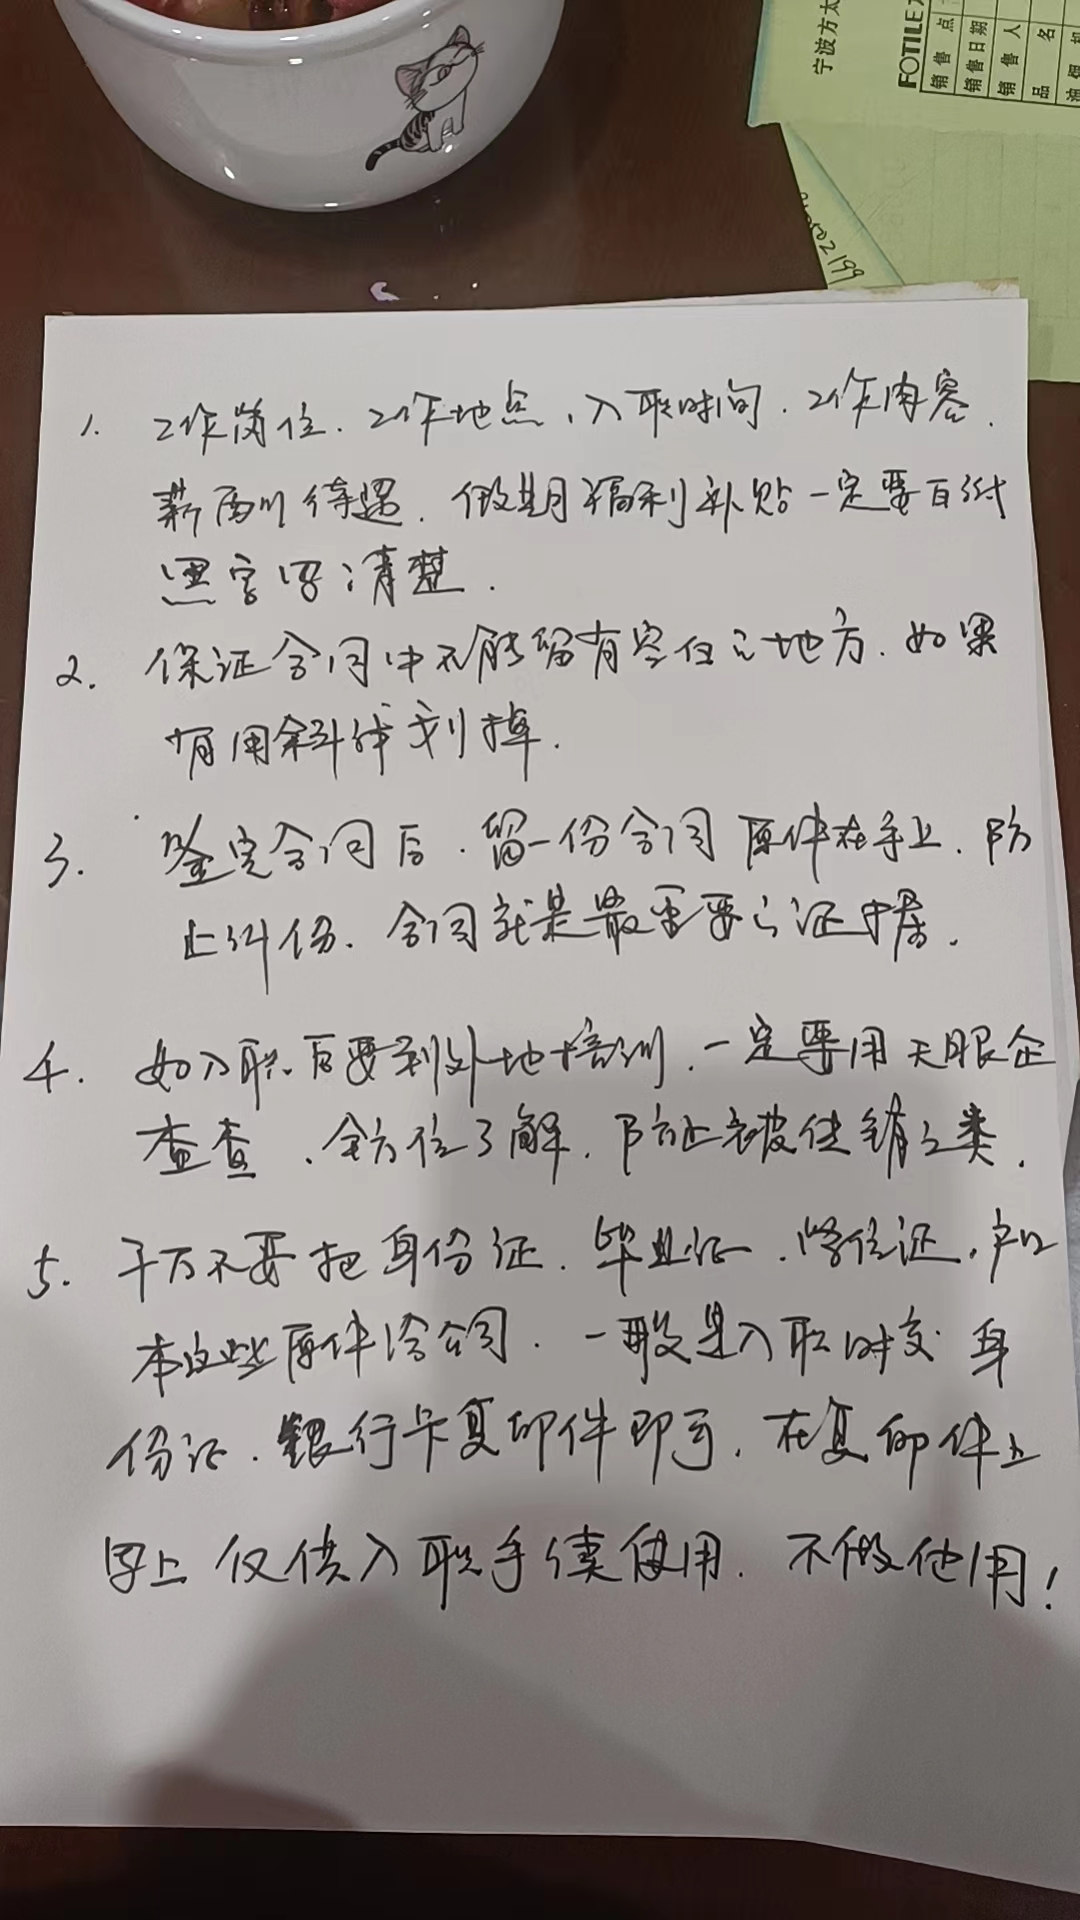 宁波方太
FOTILE
销售点
销售日期
销售人
品名
油烟机
2199
1. 工作岗位、工作地点、入职时间、工作内容、
薪酬待遇、假期福利补贴一定要白纸
黑字写清楚.
2. 保证合同中不能留有空白之地方、如果
有用斜线划掉.
3. 鉴完合同后、留一份合同原件在手上、防
止纠纷、合同就是最重要之证据.
4. 如入职后要到外地培训、一定要用天眼企
查查、全方位了解、防止被传销之类.
5. 千万不要把身份证、毕业证、学位证、户口
本这些原件给公司、一般是入职时交身
份证、银行卡复印件即可、在复印件上
写上仅供入职手续使用、不做他用!